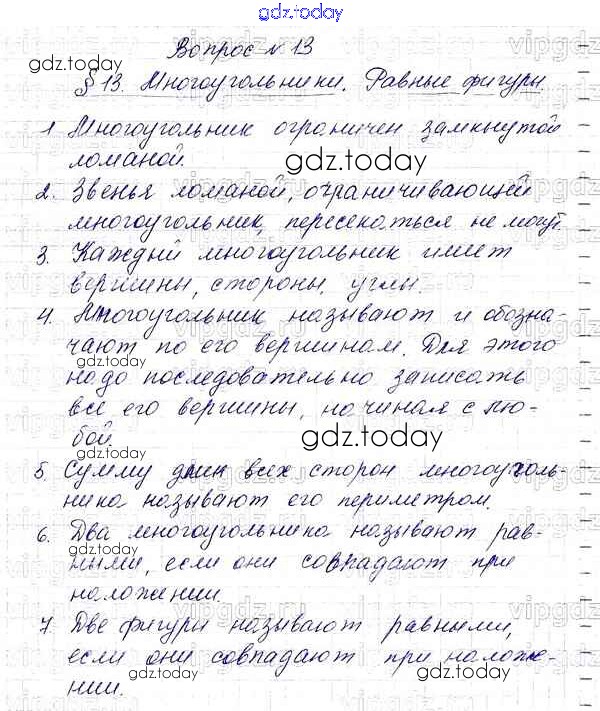 gdz.today
Вопрос № 13
§ 13. Многоугольники. Равные фигуры.
1. Многоугольник ограничен замкнутой
ломаной.
2. Звенья ломаной, ограничивающей
многоугольник, пересекаться не могут.
3. Каждый многоугольник имеет
вершины, стороны, углы.
4. Многоугольник называют и обозна-
чают по его вершинам. Для этого
надо последовательно записать
все его вершины, начиная с лю-
бой.
5. Сумму длин всех сторон многоуголь-
ника называют его периметром.
6. Два многоугольника называют рав-
ными, если они совпадают при
наложении.
7. Две фигуры называют равными,
если они совпадают при наложе-
нии.
gdz.today
gdz.today
gdz.today
gdz.today
gdz.today
gdz.today
gdz.today
gdz.today
vipgdz.ru